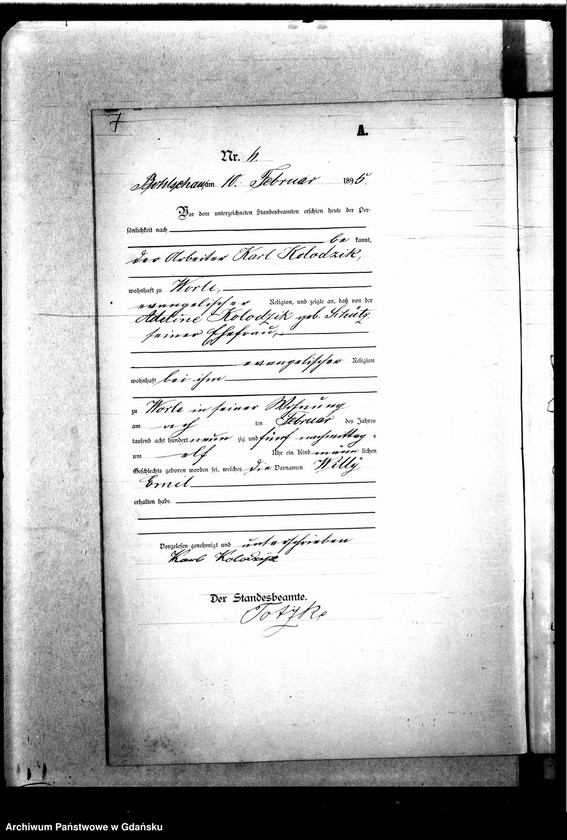 7
A.
Nr. 4.
Bohlschau, am 10. Februar 1895.
Vor dem unterzeichneten Standesbeamten erschien heute der Per-
sönlichkeit nach
be kannt,
der Arbeiter Karl Kolodzik,
wohnhaft zu Worle,
evangelischer Religion, und zeigte an, daß von der
Adeline Kolodzik geb. Schütz,
seiner Ehefrau,
evangelischer Religion
wohnhaft bei ihm
zu Worle in seiner Wohnung
am ten Februar des Jahres
tausend acht hundert neun zig und fünf nachmittag s
um elf Uhr ein Kind männ lichen
Geschlechts geboren worden sei, welches die Vornamen Willy
Emil
erhalten habe.
Vorgelesen genehmigt und unterschrieben
Karl Kolodzik
Der Standesbeamte.
Totzke
Archiwum Państwowe w Gdańsku